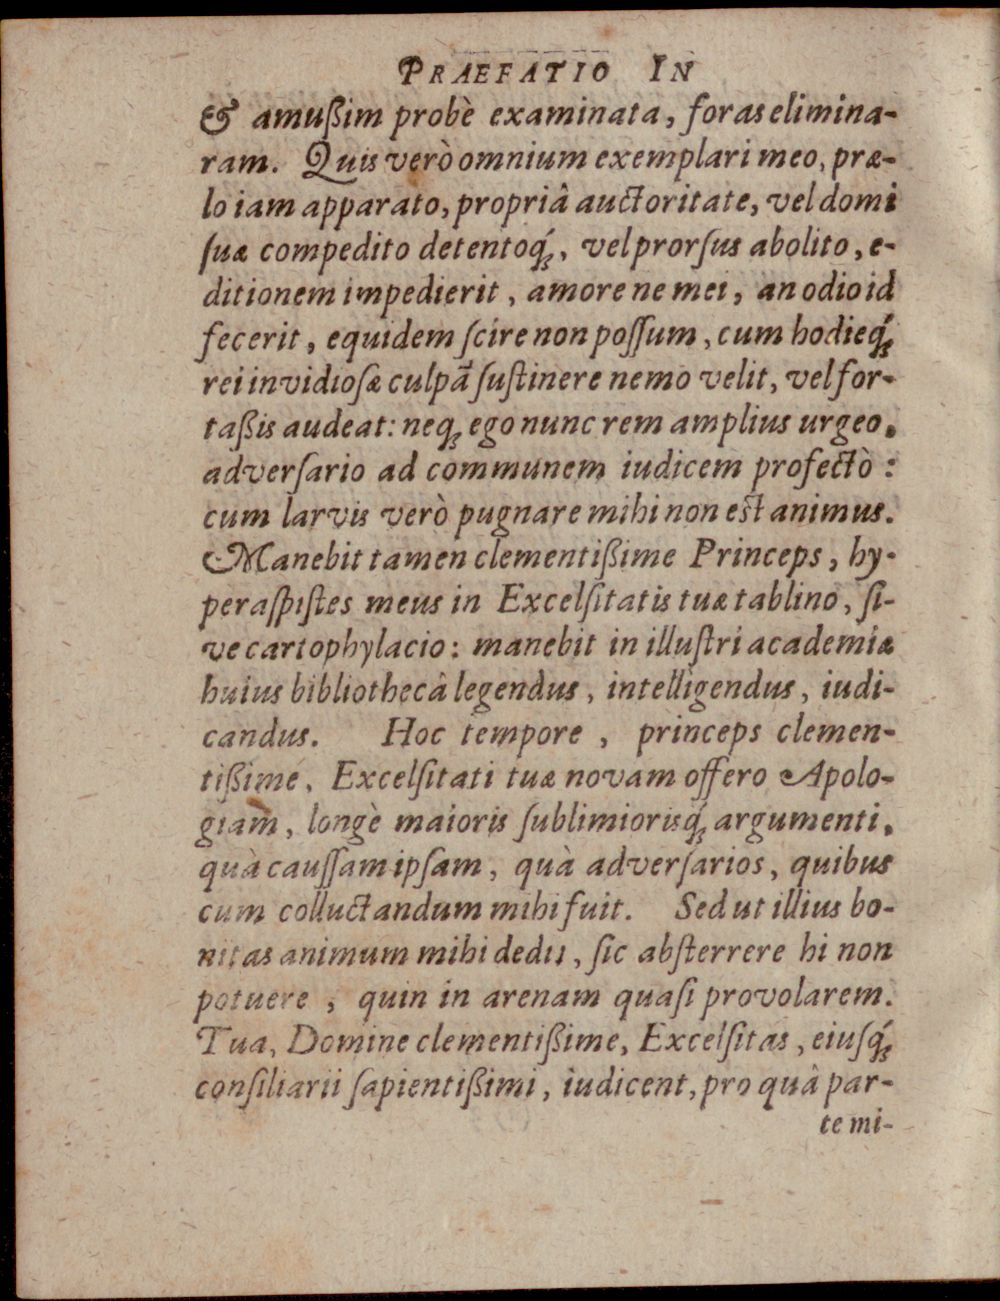 PRAEFATIO IN
& amußim probè examinata, foras elimina-
ram. Quis verò omnium exemplari meo, præ-
lo iam apparato, propriâ auctoritate, vel domi
ſuæ compedito detentoq́ꝫ, vel prorſus abolito, e-
ditionem impedierit, amore ne mei, an odio id
fecerit, equidem ſcire non poſſum, cum hodieq́ꝫ
rei invidioſæ culpã ſuſtinere nemo velit, vel for-
taßis audeat: neqꝫ ego nunc rem amplius urgeo.
adverſario ad communem iudicem profectò:
cum larvis verò pugnare mihi non est animus.
Manebit tamen clementißime Princeps, hy-
peraſpiſtes meus in Excelſitatis tuæ tablino, ſi-
ve cartophylacio: manebit in illuſtri academiæ
huius bibliothecâ legendus, intelligendus, iudi-
candus. Hoc tempore, princeps clemen-
tißime, Excelſitati tuæ novam offero Apolo-
giam, longè maioris ſublimiorisq́ꝫ argumenti,
quà cauſſam ipſam, quà adverſarios, quibus
cum colluctandum mihi fuit. Sed ut illius bo-
nitas animum mihi dedit, ſic abſterrere hi non
potuere, quin in arenam quaſi provolarem.
Tua, Domine clementißime, Excelſitas, eiuſq́ꝫ
conſiliarii ſapientißimi, iudicent, pro quâ par-
te mi-